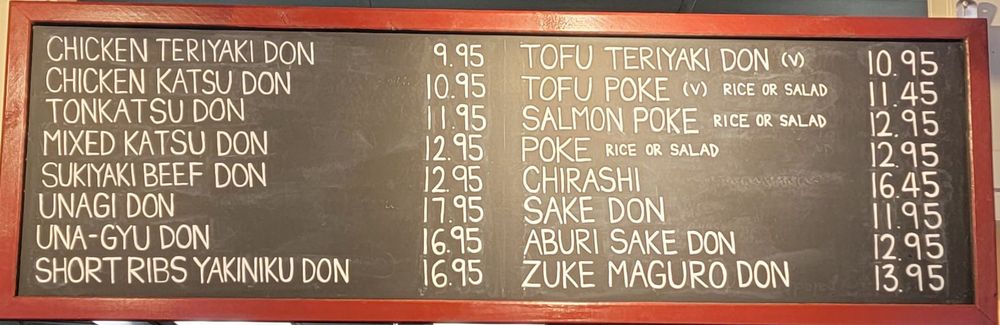 CHICKEN TERIYAKI DON 9.95
CHICKEN KATSU DON 10.95
TONKATSU DON 11.95
MIXED KATSU DON 12.95
SUKIYAKI BEEF DON 12.95
UNAGI DON 17.95
UNA-GYU DON 16.95
SHORT RIBS YAKINIKU DON 16.95
TOFU TERIYAKI DON (V) 10.95
TOFU POKE (V) RICE OR SALAD 11.45
SALMON POKE RICE OR SALAD 12.95
POKE RICE OR SALAD 12.95
CHIRASHI 16.45
SAKE DON 11.95
ABURI SAKE DON 12.95
ZUKE MAGURO DON 13.95